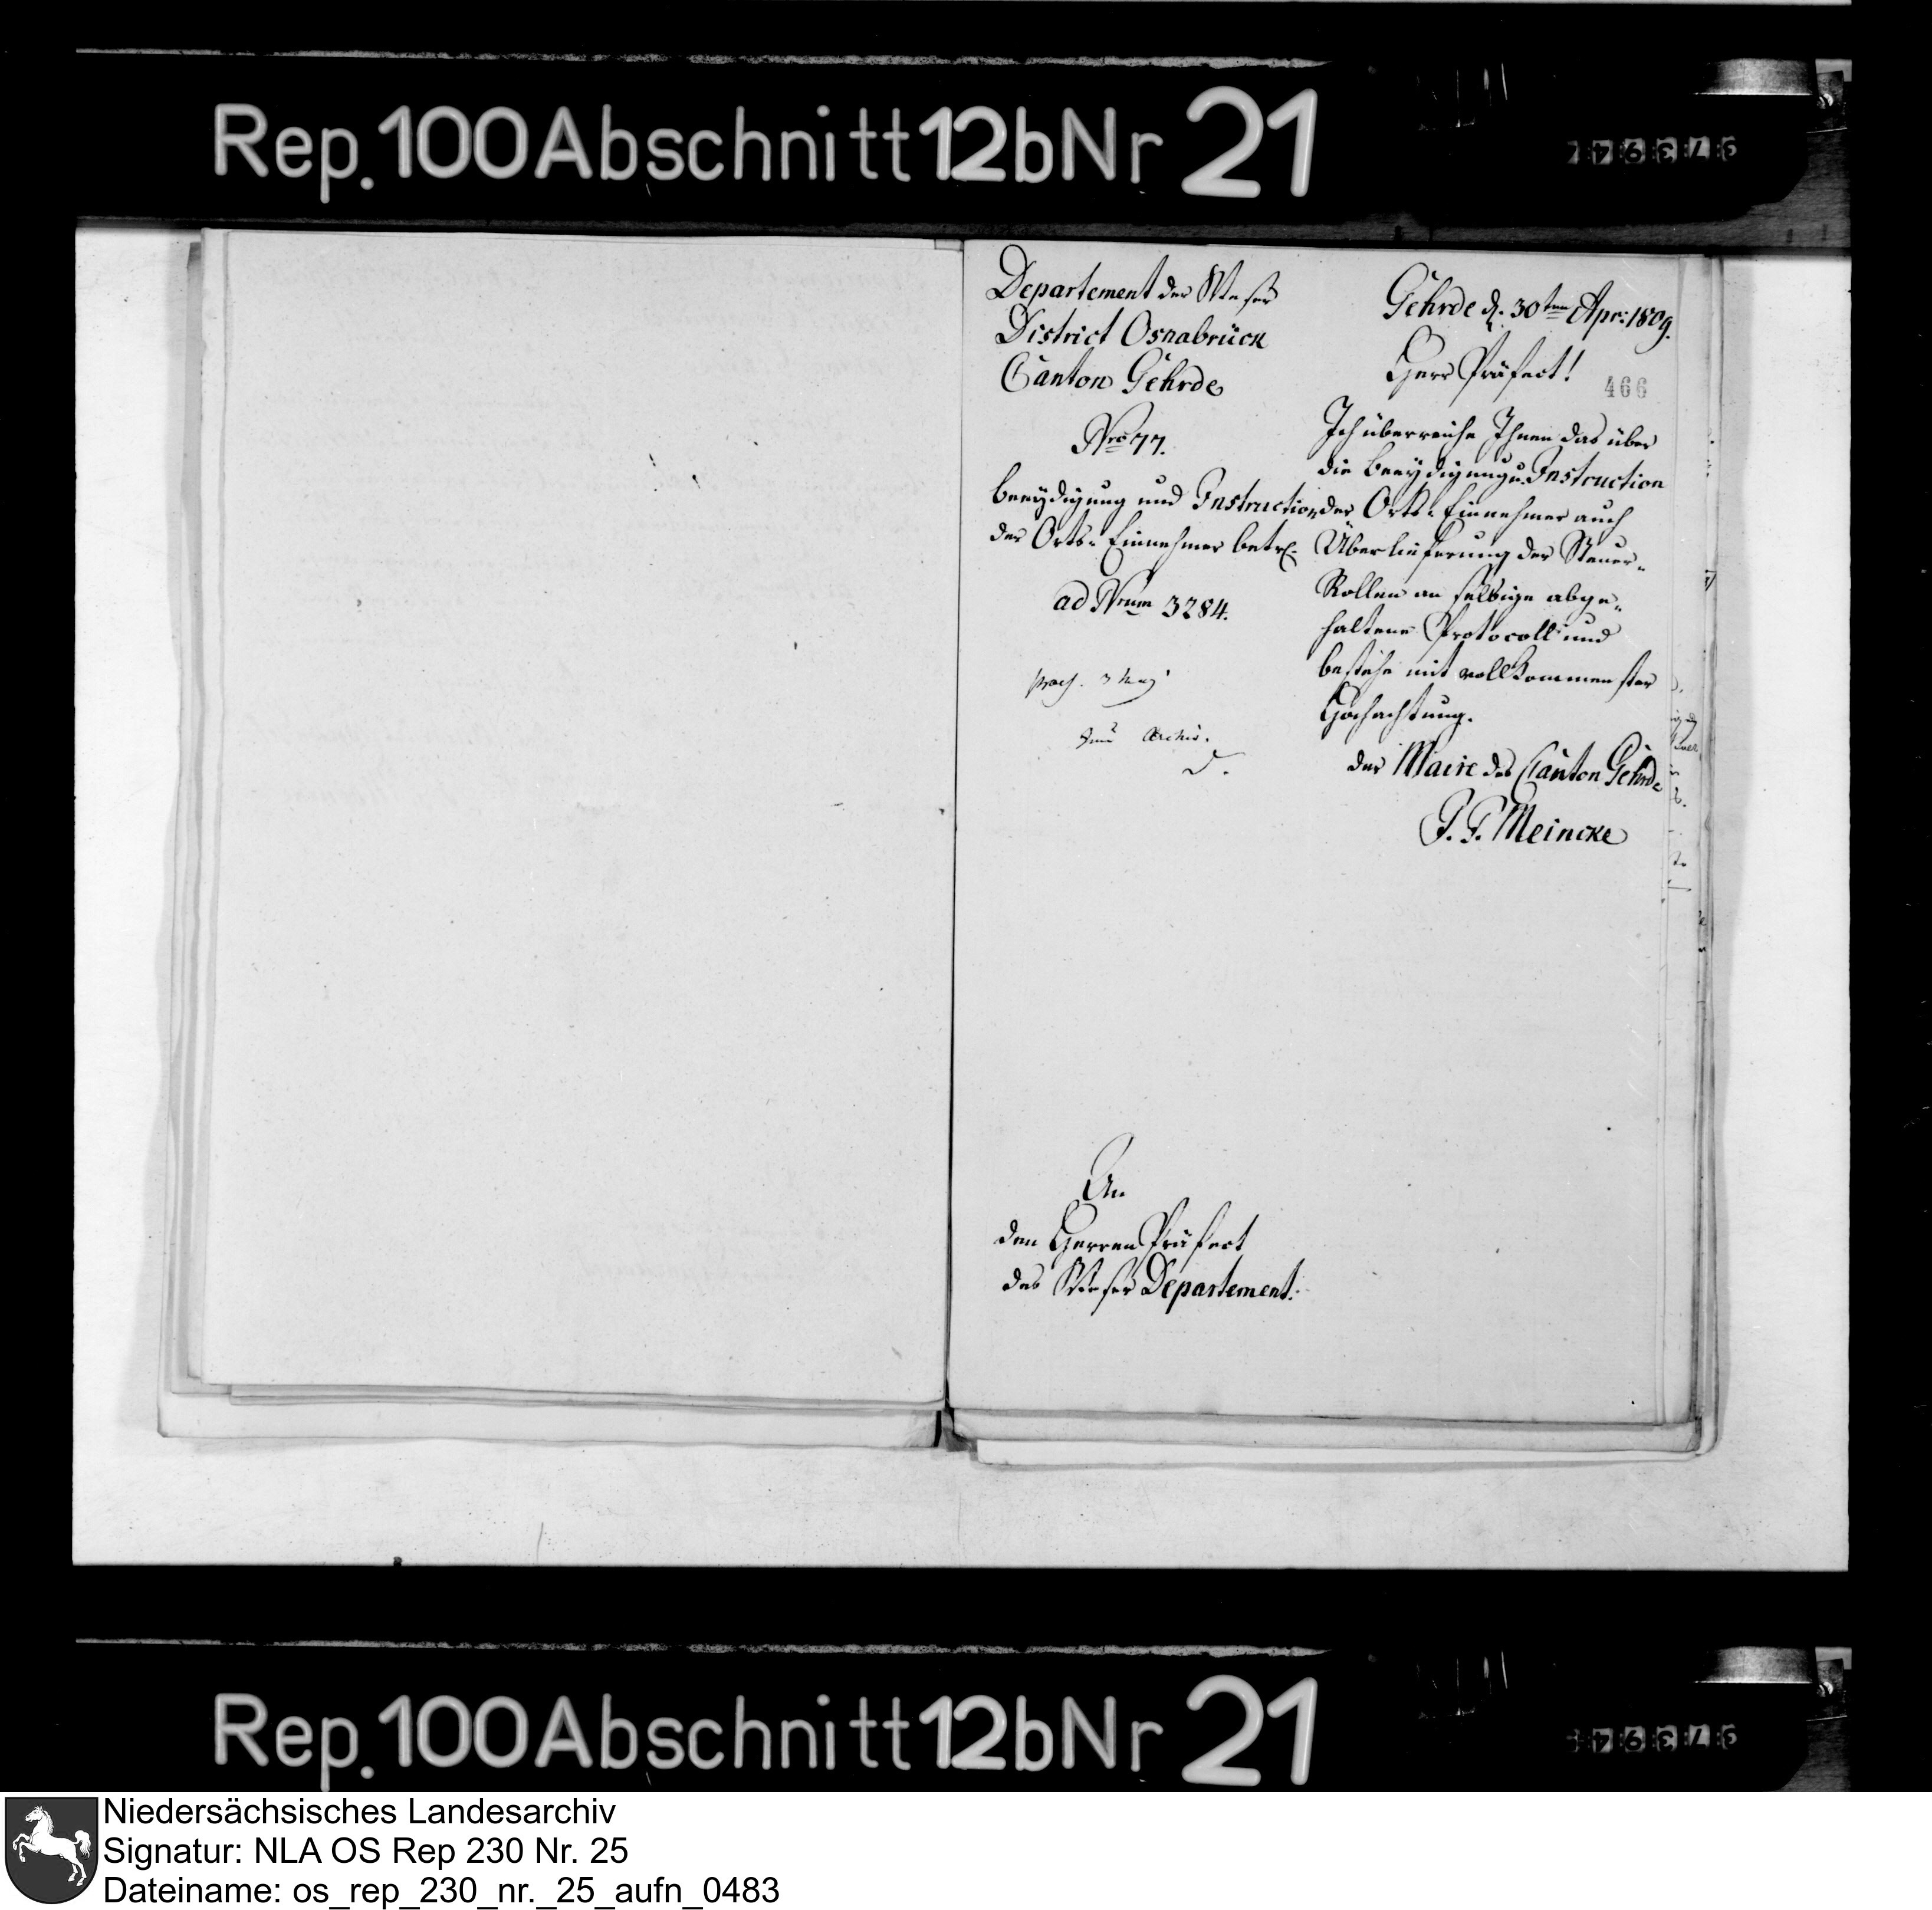 Rep. 100 Abschnitt 12b Nr 21
Departement der Weser
District Osnabrück
Canton Gehrde
Nro 77.
Beeydigung und Instruction
der Orts-Einnehmer betr.
ad Nrum 3284.
praes. 3 May
zum Archiv.
D.
An
den Herren Präfect
des Weser Departement.
Gehrde d. 30ten Apr: 1809.
Herr Präfect!
466
Ich überreiche Ihnen das über
die Beeydigung u. Instruction
der Orts-Einnehmer auch
Überlieferung der Steuer-
Rollen an selbige abge-
haltene Protocoll und
bestehe mit vollkommenster
Hochachtung.
der Maire des Canton Gehrde
Meincke
Rep. 100 Abschnitt 12b Nr 21
Niedersächsisches Landesarchiv
Signatur: NLA OS Rep 230 Nr. 25
Dateiname: os_rep_230_nr._25_aufn_0483